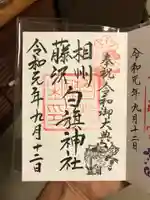 奉祝令和御大典
相州
藤沢 白旗神社
令和元年九月十二日
令和元年九月十二日